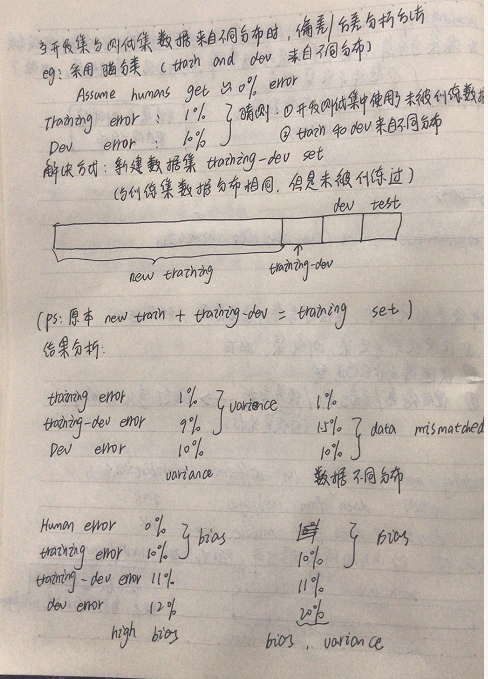 当开发集与测试集数据来自不同分布时，偏差/方差分析方法
eg: 采用 猫分类 (train and dev 来自不同分布)
Assume humans get ≈ 0% error
Training error : 1%
Dev error : 10%
猜测: ① 开发测试集中使用了未被训练数据
② train 和 dev 来自不同分布
解决方式: 新建数据集 training-dev set
(与训练集数据分布相同, 但是未被训练过)
dev test
new training training-dev
(ps: 原本 new train + training-dev = training set)
结果分析:
training error 1% variance 1%
training-dev error 9% 1.5% data mismatched
Dev error 10% 10%
variance 数据不同分布
Human error 0% bias
training error 10% 10% bias
training-dev error 11% 11%
dev error 12% 20%
high bias bias, variance